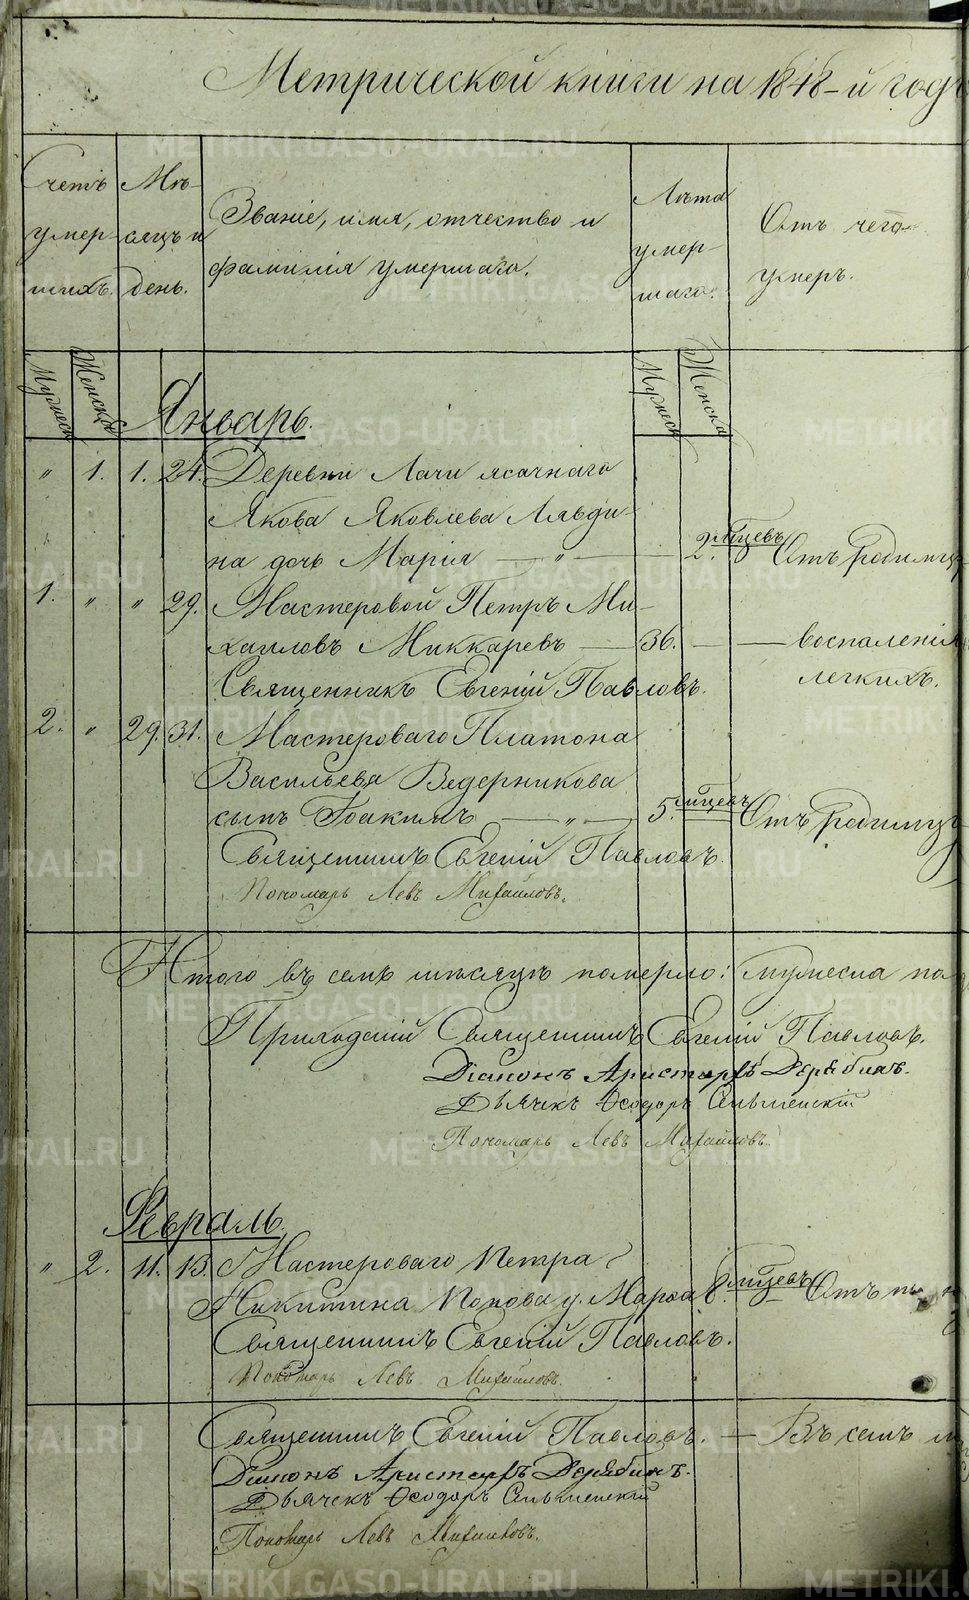 Метрической книги на 1848-й годъ
Счетъ умер- шихъ.
Мѣ- сяцъ и день.
Званіе, имя, отчество и
фамилія умершаго.
Лѣта умер- шаго.
Отъ чего
умеръ.
Мужеск Женска
Мужеск Женска
Январь.
„ 1. 1. 24. Деревни Лачи ясачнаго
Якова Яковлева Лявди-
на дочь Марія — „ — 2. мѣсяцевъ Отъ родимца
1. „ „ 29. Мастеровой Петръ Ми-
хаиловъ Миккаревъ — 36. — — воспаленія
легкихъ.
Священникъ Евгеній Павловъ.
2. „ 29. 31. Мастероваго Платона
Васильева Ведерникова
сынъ Іоакимъ — „ — 5. мѣсяцевъ Отъ родимца
Священникъ Евгеній Павловъ.
Пономарь Левъ Михайловъ.
Итого въ семъ мѣсяцѣ померло: мужеска по
Приходскій Священникъ Евгеній Павловъ.
Діаконъ Аристархъ Дерябинъ.
Дьячекъ Ѳеодоръ Сельменскій
Пономарь Левъ Михайловъ.
Февраль.
„ 2. 11. 13. Мастероваго Петра
Никитина Попова д. Марѳа 8. мѣсяцевъ Отъ
Священникъ Евгеній Павловъ.
Пономарь Левъ Михайловъ.
Священникъ Евгеній Павловъ. — Въ семъ
Діаконъ Аристархъ Дерябинъ.
Дьячекъ Ѳеодоръ Сельменскій
Пономарь Левъ Михайловъ.
METRIKI.GASO-URAL.RU